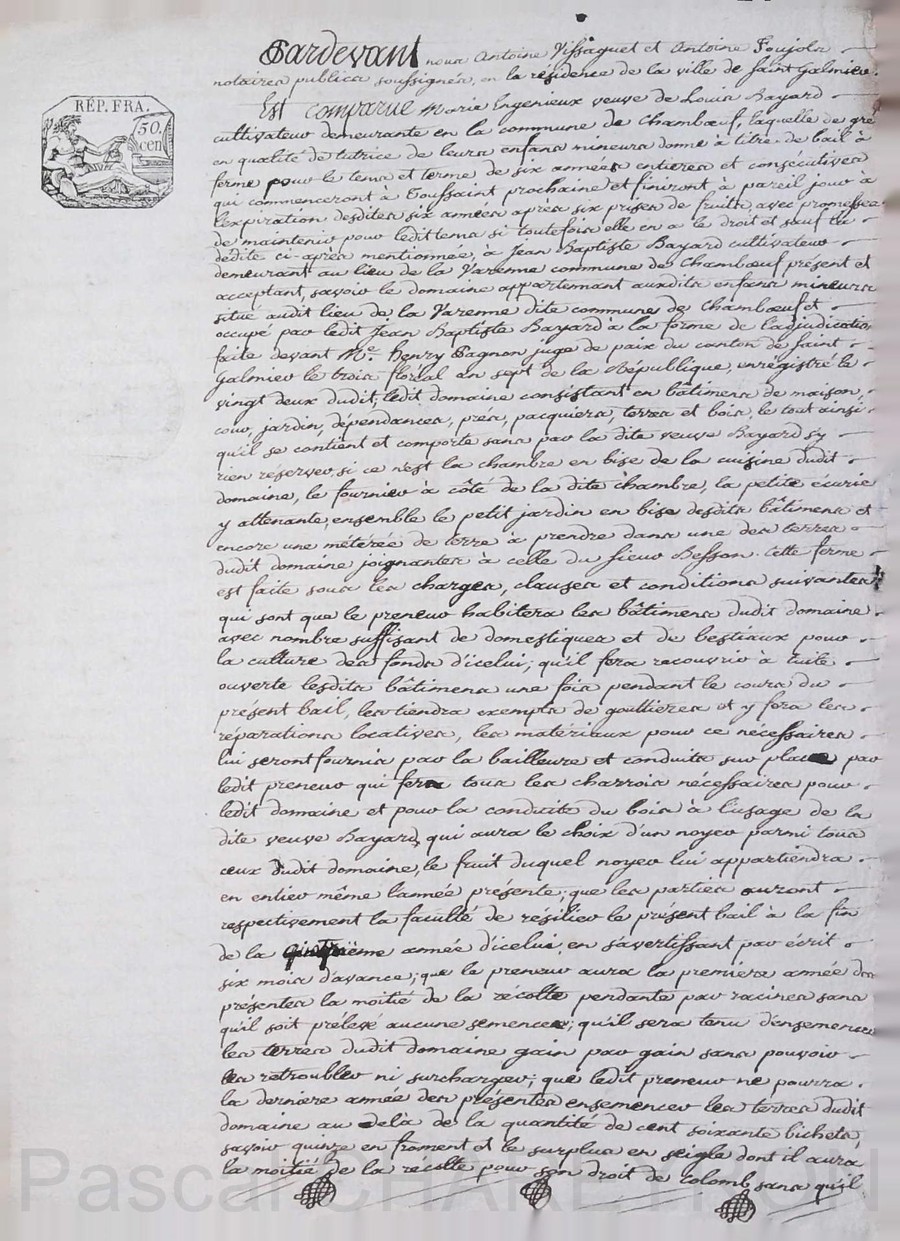 RÉP. FRA.
50.
cen
Pardevant nous Antoine Vissaguet et Antoine Foujols
notaires publics soussignés, en la résidence de la ville de Saint Galmier.
Est comparue Marie Engenieux veuve de Louis Bayard
cultivateur demeurante en la commune de Chambœuf, laquelle de gré
en qualité de tutrice de leurs enfans mineurs donne à titre de bail à
ferme pour le tems et terme de six années entieres et consécutives
qui commenceront à Toussaint prochaine et finiront à pareil jour à
l'expiration desdites six années après six prises de fruits, avec promesse
de maintenir pour ledit tems si toutefois elle en a le droit et sauf la
dédite ci-après mentionnée, à Jean Baptiste Bayard cultivateur
demeurant au lieu de la Varenne commune de Chambœuf présent et
acceptant, savoir le domaine appartenant auxdits enfans mineurs
situé audit lieu de la Varenne dite commune de Chambœuf et
occupé par ledit Jean Baptiste Bayard à la forme de l'adjudication
faite devant Me. Henry Pagnon juge de paix du canton de Saint
Galmier le trois floréal an sept de la République, enregistré le
vingt deux dudit, ledit domaine consistant en bâtimens de maison,
cour, jardin, dépendances, prés, pacquiers, terres et bois, le tout ainsi
qu'il se contient et comporte sans par la dite veuve Bayard s'y
rien réserver, si ce n'est la chambre en bise de la cuisine dudit
domaine, le fournier à côté de la dite chambre, la petite écurie
y attenante, ensemble le petit jardin en bise desdits bâtimens et
encore une métérée de terre à prendre dans une des terres
dudit domaine joignantes à celle du sieur Besson. Cette ferme
est faite sous les charges, clauses et conditions suivantes
qui sont que le preneur habitera les bâtimens dudit domaine
avec nombre suffisant de domestiques et de bestiaux pour
la culture des fonds d'icelui; qu'il fera recouvrir à tuile
ouverte lesdits bâtimens une fois pendant le cours du
présent bail, les tiendra exempts de gouttieres et y fera les
réparations locatives, les matériaux pour ce nécessaires
lui seront fournis par la bailleure et conduits sur place par
ledit preneur qui fera tous les charrois nécessaires pour
ledit domaine et pour la conduite du bois à l'usage de la
dite veuve Bayard, qui aura le choix d'un noyer parmi tous
ceux dudit domaine, le fruit duquel noyer lui appartiendra
en entier même l'année présente; que les parties auront
respectivement la faculté de résilier le présent bail à la fin
de la année d'icelui en s'avertissant par écrit
six mois d'avance; que le preneur aura la premiere année des
présentes la moitié de la récolte pendante par racines sans
qu'il soit prélevé aucune semence; qu'il sera tenu d'ensemencer
les terres dudit domaine gain par gain sans pouvoir
les retroubler ni surcharger; que ledit preneur ne pourra
la derniere année des présentes ensemencer les terres dudit
domaine au delà de la quantité de cent soixante bichets,
savoir quinze en froment et le surplus en seigle dont il aura
la moitié de la récolte pour son droit de colomb sans qu'il